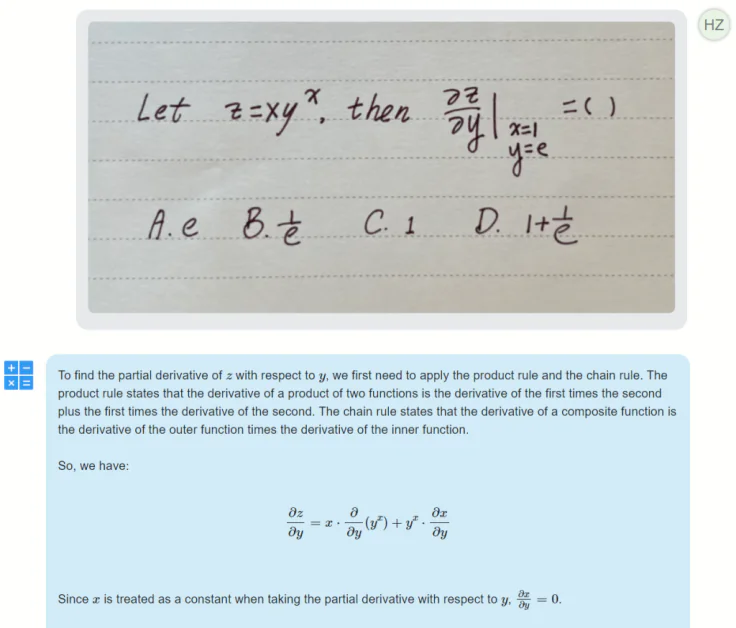 HZ
Let z=xy^x, then ∂z/∂y | x=1 y=e =( )
A. e B. 1/e C. 1 D. 1+1/e
To find the partial derivative of z with respect to y, we first need to apply the product rule and the chain rule. The
product rule states that the derivative of a product of two functions is the derivative of the first times the second
plus the first times the derivative of the second. The chain rule states that the derivative of a composite function is
the derivative of the outer function times the derivative of the inner function.
So, we have:
∂z/∂y = x · ∂/∂y (y^x) + y^x · ∂x/∂y
Since x is treated as a constant when taking the partial derivative with respect to y, ∂x/∂y = 0.